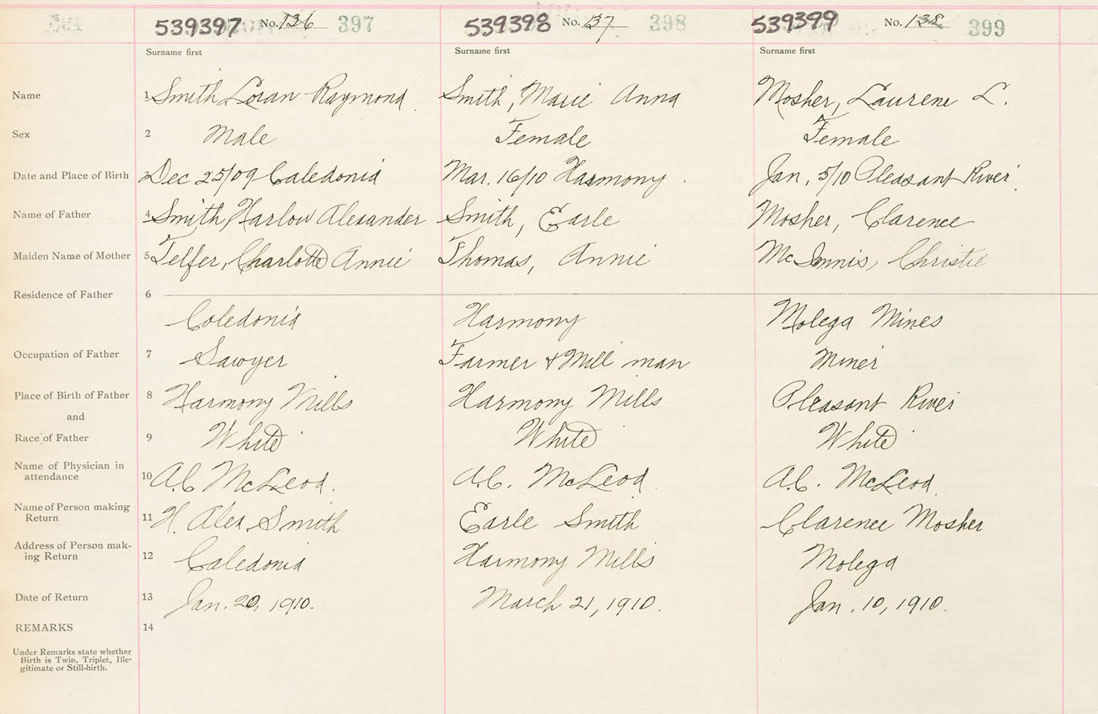 539397 No. 136 397 539398 No. 137 398 539399 No. 138 399
Surname first Surname first Surname first
Name 1 Smith Loran Raymond Smith, Marie Anna Mosher, Laurene L.
Sex 2 Male Female Female
Date and Place of Birth 3 Dec 25/09 Caledonia Mar. 16/10 Harmony. Jan. 5/10 Pleasant River.
Name of Father 4 Smith, Harlow Alexander Smith, Earle Mosher, Clarence
Maiden Name of Mother 5 Telfer, Charlotte Annie Thomas, Annie McInnis, Christie
Residence of Father 6
Caledonia Harmony Molega Mines
Occupation of Father 7 Sawyer Farmer & Mill man Miner
Place of Birth of Father 8 Harmony Mills Harmony Mills Pleasant River
and
Race of Father 9 White White White
Name of Physician in
attendance 10 A.C. McLeod. A.C. McLeod. A.C. McLeod.
Name of Person making
Return 11 H. Alex Smith Earle Smith Clarence Mosher
Address of Person mak-
ing Return 12 Caledonia Harmony Mills Molega
Date of Return 13 Jan. 20, 1910. March 21, 1910. Jan. 10, 1910.
REMARKS 14
Under Remarks state whether
Birth is Twin, Triplet, Ille-
gitimate or Still-birth.